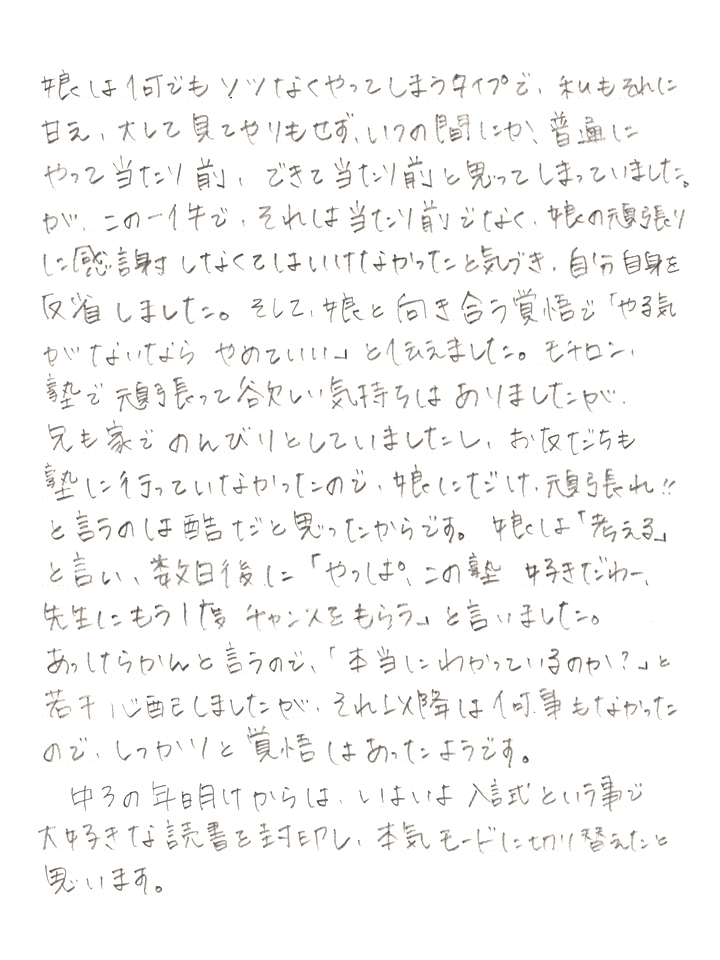 娘は何でもソツなくやってしまうタイプで、私もそれに
甘え、大して見てやりもせず、いつの間にか、普通に
やって当たり前、できて当たり前と思ってしまっていました。
が、この一件で、それは当たり前でなく、娘の頑張り
に感謝しなくてはいけなかったと気づき、自分自身を
反省しました。そして、娘と向き合う覚悟で「やる気
がないなら やめていい」と伝えました。モチロン、
塾で頑張って欲しい気持ちはありましたが、
兄も家でのんびりとしていましたし、お友だちも
塾に行っていなかったので、娘にだけ、頑張れ!!
と言うのは酷だと思ったからです。娘は「考える」
と言い、数日後に「やっぱ、この塾 好きだわー、
先生にもう1度 チャンスをもらう」と言いました。
あっけらかんと言うので、「本当にわかっているのか?」と
若干心配しましたが、それ以降は何事もなかった
ので、しっかりと覚悟はあったようです。
中3の年明けからは、いよいよ入試という事で
大好きな読書を封印し、本気モードに切り替えたと
思います。